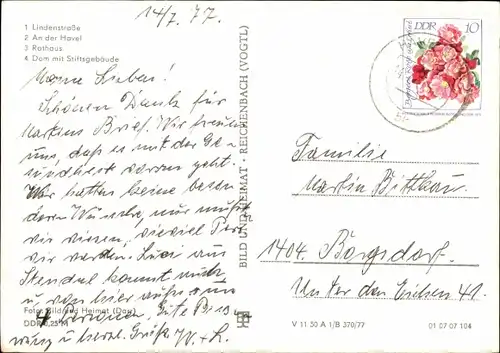 1 Lindenstraße
2 An der Havel
3 Rathaus
4 Dom mit Stiftsgebäude
14/7. 77.
Meine Lieben!
Schönen Dank für
Martins Brief. Wir freuen
uns, daß es mit der Ge-
sundheit voran geht.
Wir hatten keine beson
deren Wünsche, nur
wir wissen, wieviel Per
wir werden. aus
Stendal kommt auch
u. von hier
4 Personen. Bis
u. herzl. Grüße W. + L.
Foto: Bild und Heimat (Dan)
DDR 0,25 M
BILD UND HEIMAT · REICHENBACH (VOGTL)
DDR 10
Familie
Martin Bittkau
1404. Borgsdorf.
Unter den Eichen 41.
V 11 50 A 1/B 370/77 01 07 07 104